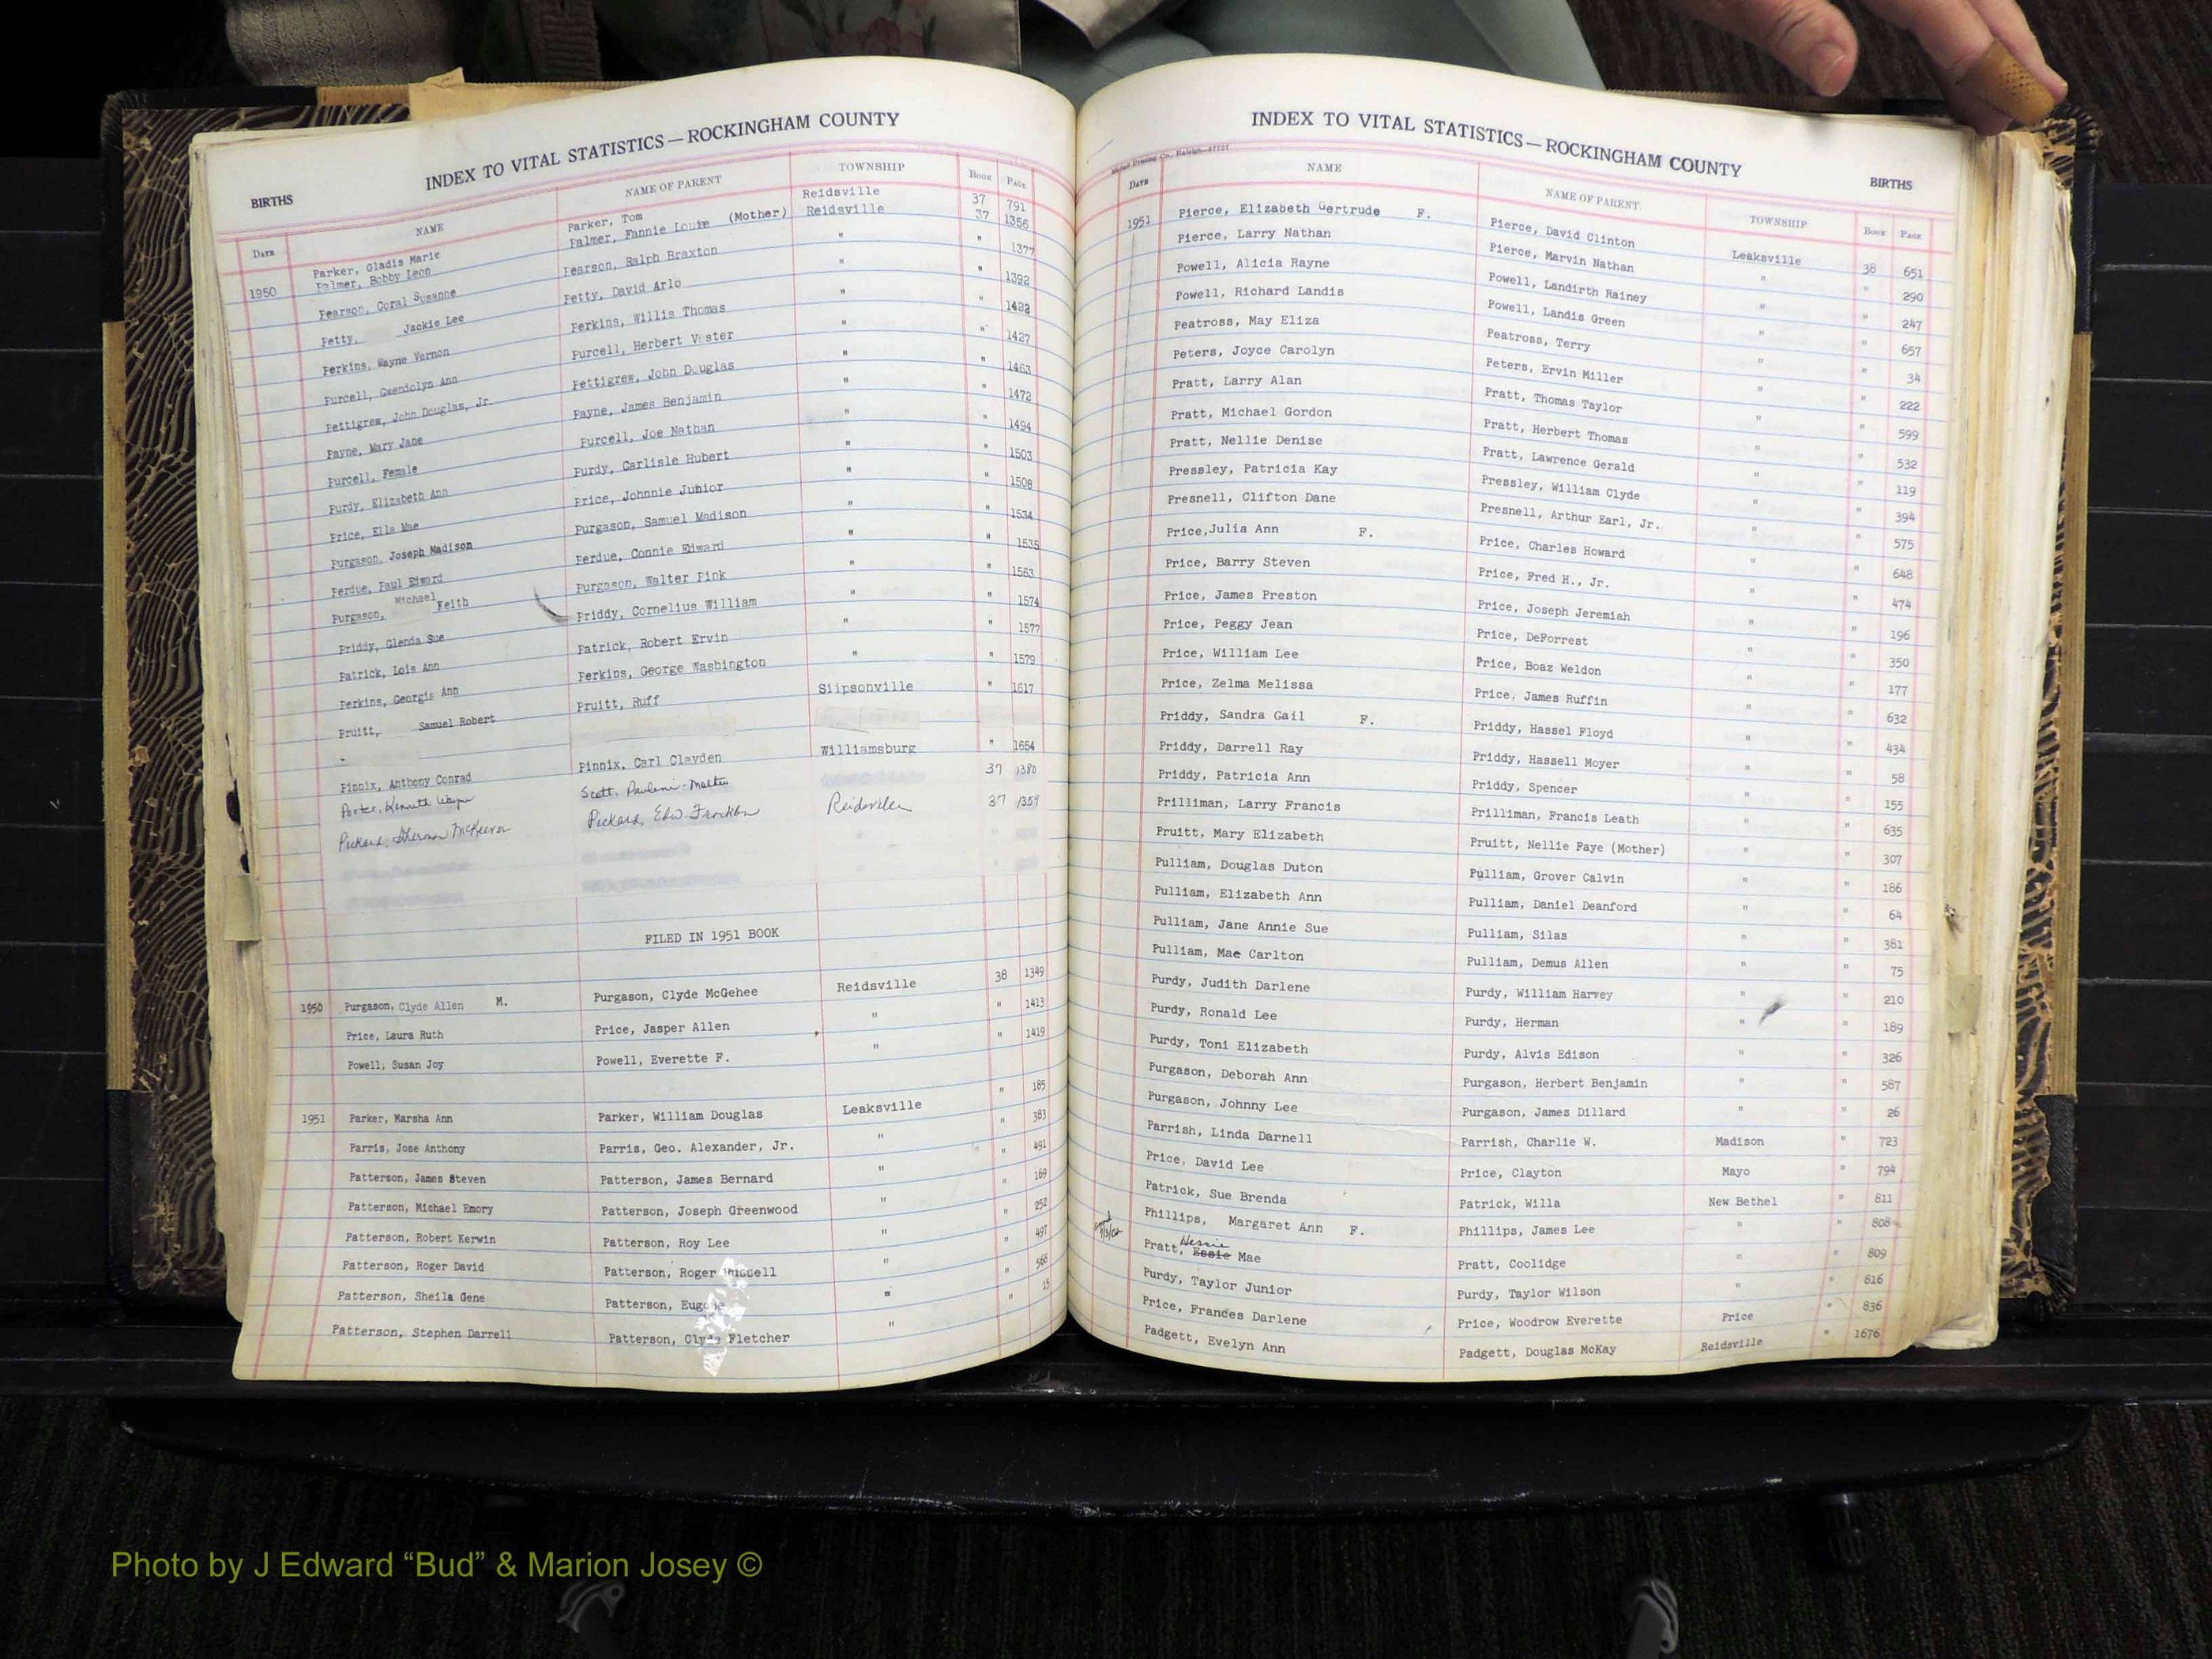 INDEX TO VITAL STATISTICS — ROCKINGHAM COUNTY
BIRTHS
DATE NAME NAME OF PARENT TOWNSHIP BOOK PAGE
Parker, Gladis Marie Parker, Tom Reidsville 37 791
1950 Palmer, Bobby Leon Palmer, Fannie Louise (Mother) Reidsville 37 1356
Pearson, Coral Susanne Pearson, Ralph Braxton " " 1377
Petty, Jackie Lee Petty, David Arlo " " 1392
Perkins, Wayne Vernon Perkins, Willis Thomas " "
Purcell, Gwendolyn Ann Purcell, Herbert Vester " " 1427
Pettigrew, John Douglas, Jr. Pettigrew, John Douglas " " 1463
Payne, Mary Jane Payne, James Benjamin " " 1472
Purcell, Female Purcell, Joe Nathan " " 1494
Purdy, Elizabeth Ann Purdy, Carlisle Hubert " " 1503
Price, Ella Mae Price, Johnnie Junior " " 1508
Purgason, Joseph Madison Purgason, Samuel Madison " " 1534
Perdue, Paul Edward Perdue, Connie Edward " " 1535
Purgason, Michael Keith Purgason, Walter Pink " " 1563
Priddy, Glenda Sue Priddy, Cornelius William " " 1574
Patrick, Lois Ann Patrick, Robert Ervin " " 1577
Perkins, Georgia Ann Perkins, George Washington " " 1579
Pruitt, Samuel Robert Pruitt, Ruff Siipsonville " 1617
Pinnix, Anthony Conrad Pinnix, Carl Clayden Williamsburg " 1654
Porter, Kenneth Wayne Scott, Pauline-Mother 37 1380
Pickard, Sherman McKeever Pickard, Edw. Franklin Reidsville 37 1359
FILED IN 1951 BOOK
1950 Purgason, Clyde Allen M. Purgason, Clyde McGehee Reidsville 38 1349
Price, Laura Ruth Price, Jasper Allen " " 1413
Powell, Susan Joy Powell, Everette F. " " 1419
1951 Parker, Marsha Ann Parker, William Douglas Leaksville " 185
Parris, Jose Anthony Parris, Geo. Alexander, Jr. " " 383
Patterson, James Steven Patterson, James Bernard " " 491
Patterson, Michael Emory Patterson, Joseph Greenwood " " 169
Patterson, Robert Kerwin Patterson, Roy Lee " " 252
Patterson, Roger David Patterson, Roger Russell " " 497
Patterson, Sheila Gene Patterson, Eugene " " 568
Patterson, Stephen Darrell Patterson, Clyde Fletcher " " 15
INDEX TO VITAL STATISTICS — ROCKINGHAM COUNTY
BIRTHS
DATE NAME NAME OF PARENT TOWNSHIP BOOK PAGE
1951 Pierce, Elizabeth Gertrude F. Pierce, David Clinton Leaksville 38 651
Pierce, Larry Nathan Pierce, Marvin Nathan " " 290
Powell, Alicia Rayne Powell, Landirth Rainey " " 247
Powell, Richard Landis Powell, Landis Green " " 657
Peatross, May Eliza Peatross, Terry " " 34
Peters, Joyce Carolyn Peters, Ervin Miller " " 222
Pratt, Larry Alan Pratt, Thomas Taylor " " 599
Pratt, Michael Gordon Pratt, Herbert Thomas " " 532
Pratt, Nellie Denise Pratt, Lawrence Gerald " " 119
Pressley, Patricia Kay Pressley, William Clyde " " 394
Presnell, Clifton Dane Presnell, Arthur Earl, Jr. " " 575
Price,Julia Ann F. Price, Charles Howard " " 648
Price, Barry Steven Price, Fred H., Jr. " " 474
Price, James Preston Price, Joseph Jeremiah " " 196
Price, Peggy Jean Price, DeForrest " " 350
Price, William Lee Price, Boaz Weldon " " 177
Price, Zelma Melissa Price, James Ruffin " " 632
Priddy, Sandra Gail F. Priddy, Hassel Floyd " " 434
Priddy, Darrell Ray Priddy, Hassell Moyer " " 58
Priddy, Patricia Ann Priddy, Spencer " " 155
Prilliman, Larry Francis Prilliman, Francis Leath " " 635
Pruitt, Mary Elizabeth Pruitt, Nellie Faye (Mother) " " 307
Pulliam, Douglas Duton Pulliam, Grover Calvin " " 186
Pulliam, Elizabeth Ann Pulliam, Daniel Deanford " " 64
Pulliam, Jane Annie Sue Pulliam, Silas " " 381
Pulliam, Mae Carlton Pulliam, Demus Allen " " 75
Purdy, Judith Darlene Purdy, William Harvey " " 210
Purdy, Ronald Lee Purdy, Herman " " 189
Purdy, Toni Elizabeth Purdy, Alvis Edison " " 326
Purgason, Deborah Ann Purgason, Herbert Benjamin " " 587
Purgason, Johnny Lee Purgason, James Dillard " " 26
Parrish, Linda Darnell Parrish, Charlie W. Madison " 723
Price, David Lee Price, Clayton Mayo " 794
Patrick, Sue Brenda Patrick, Willa New Bethel " 811
Phillips, Margaret Ann F. Phillips, James Lee " " 808
Pratt, Essie Hessie Mae Pratt, Coolidge " " 809
Purdy, Taylor Junior Purdy, Taylor Wilson " " 816
Price, Frances Darlene Price, Woodrow Everette Price " 836
Padgett, Evelyn Ann Padgett, Douglas McKay Reidsville " 1676
Photo by J Edward “Bud” & Marion Josey ©